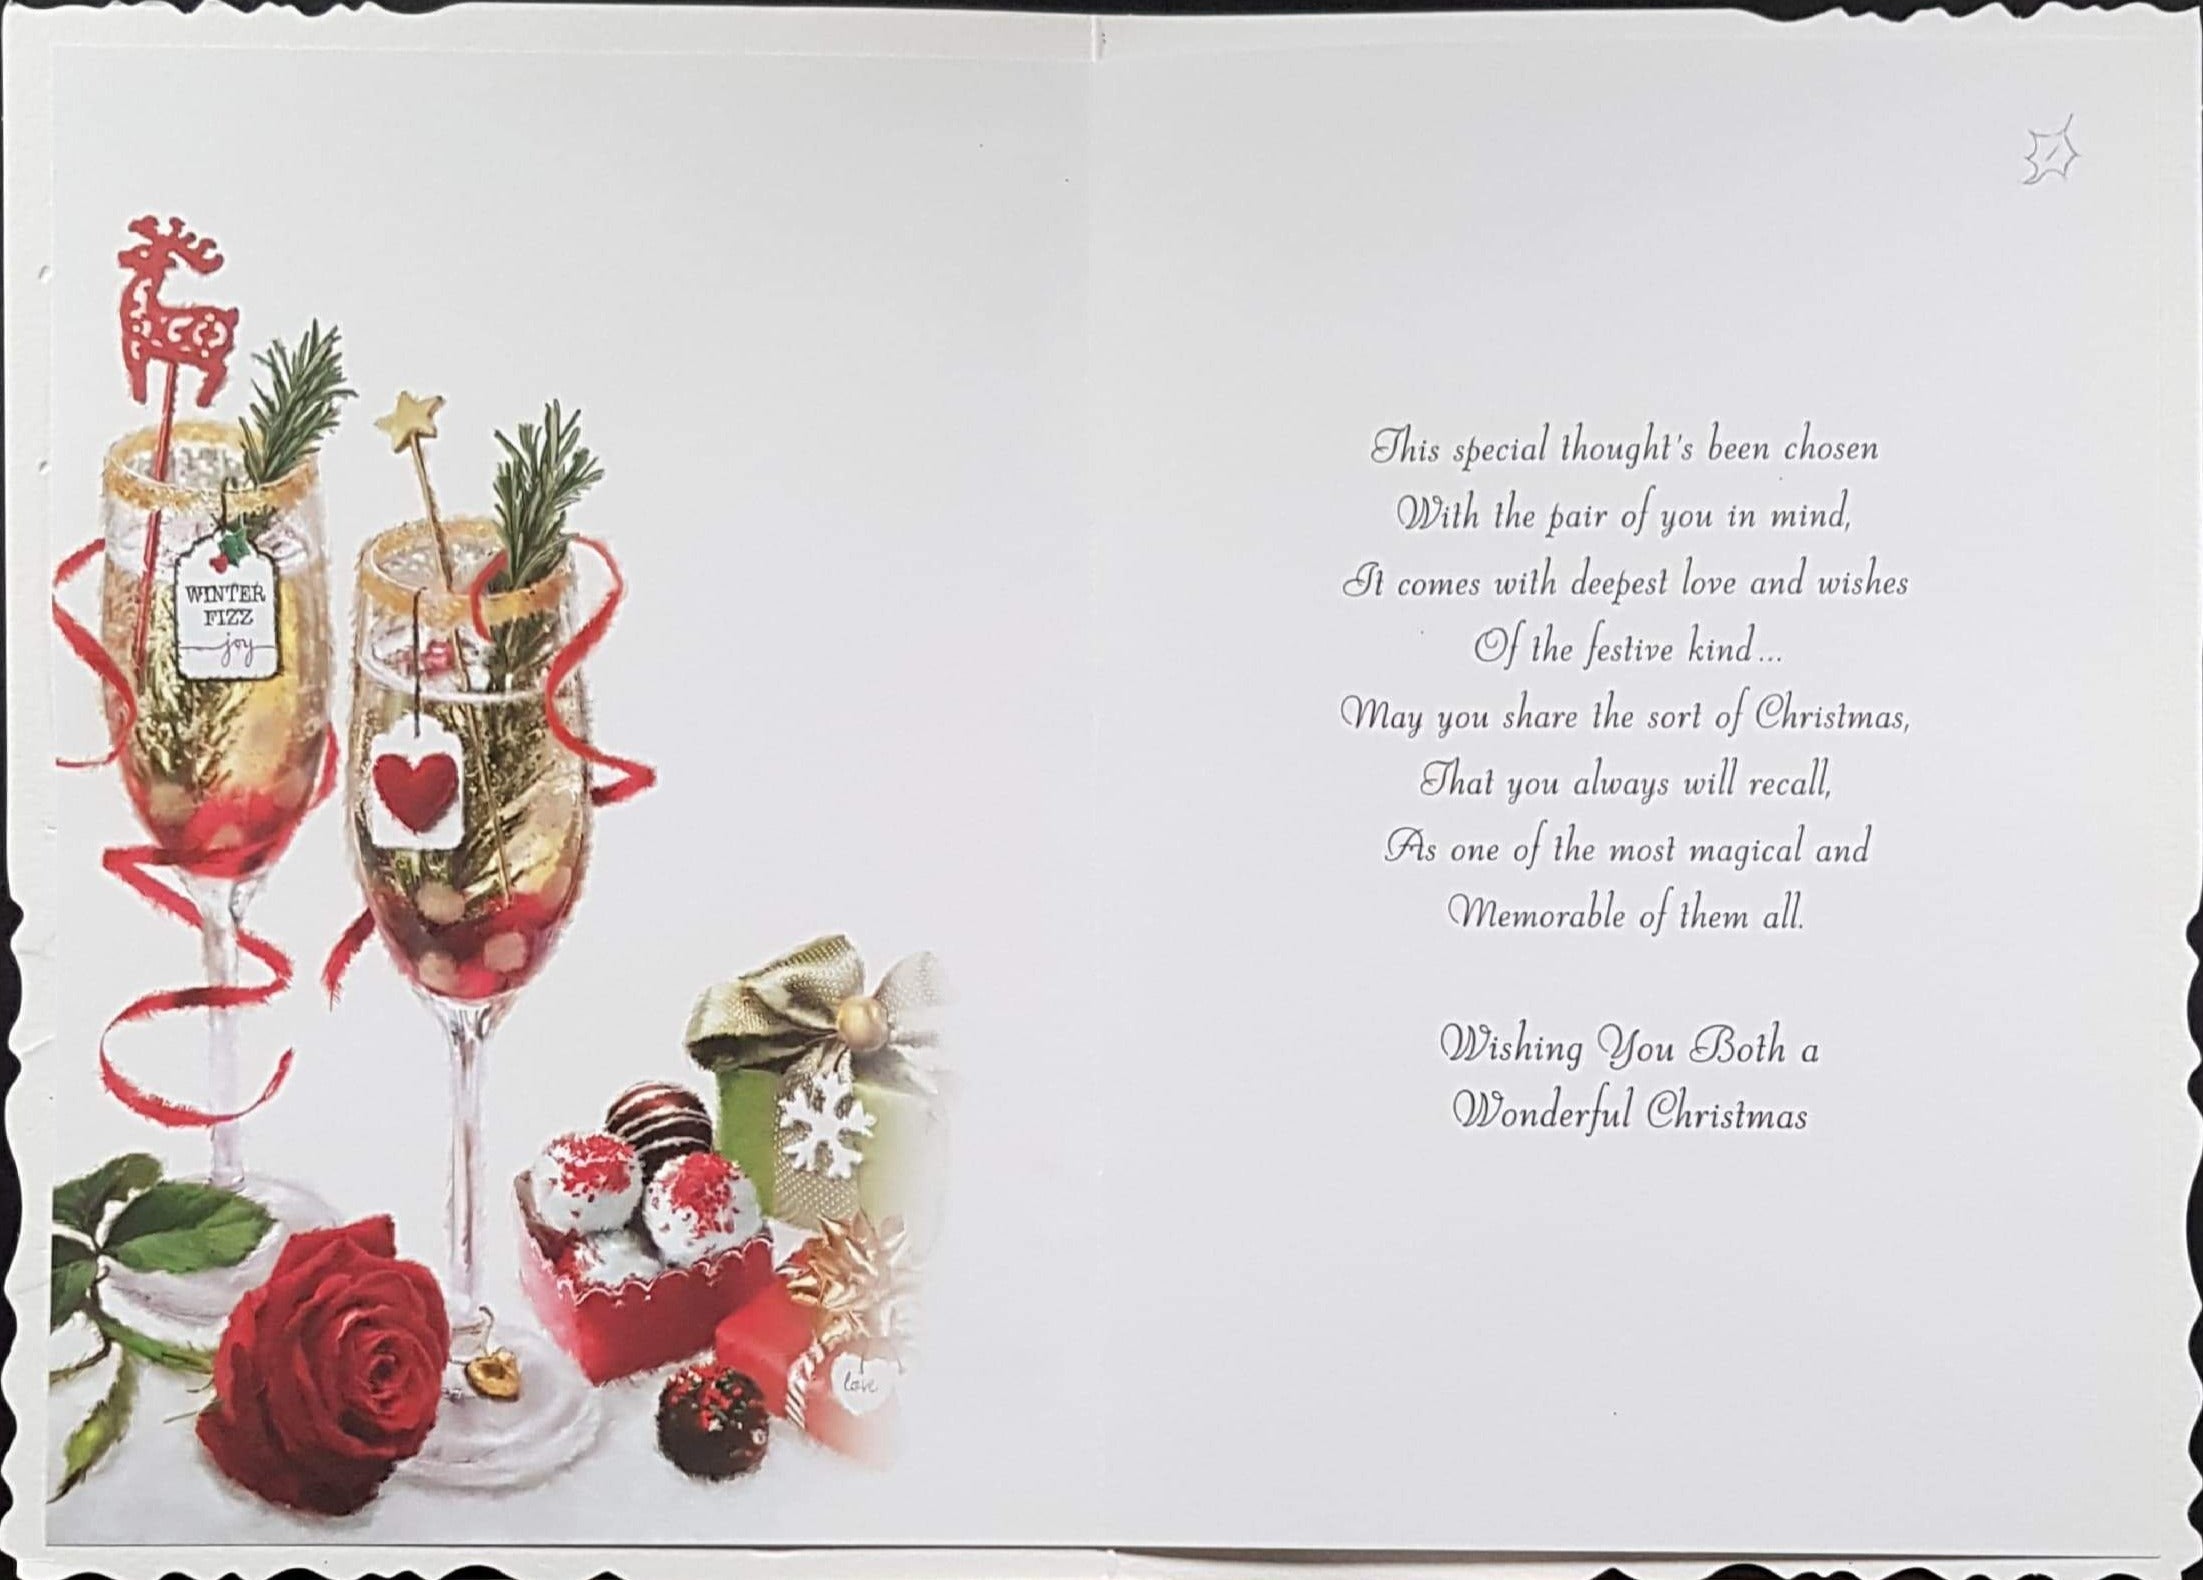 WINTER
FIZZ
joy
love
This special thought's been chosen
With the pair of you in mind,
It comes with deepest love and wishes
Of the festive kind...
May you share the sort of Christmas,
That you always will recall,
As one of the most magical and
Memorable of them all.
Wishing You Both a
Wonderful Christmas